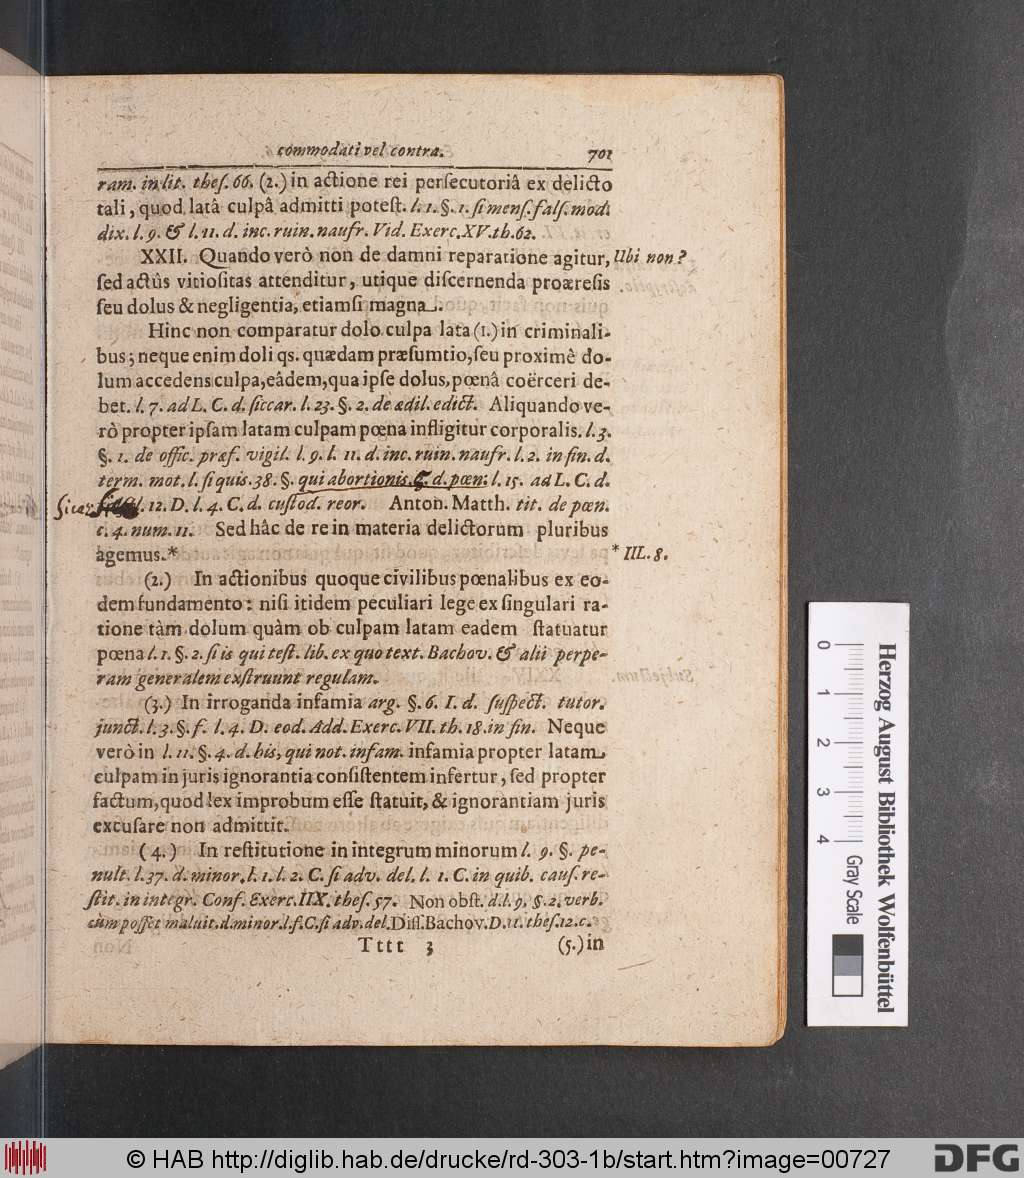 commodati vel contra. 701
ram. in lit. thes. 66. (2.) in actione rei persecutoriâ ex delicto
tali, quod latâ culpâ admitti potest. l. 1. §. 1. si mens. fals. mod.
dix. l. 9. & l. 11. d. inc. ruin. naufr. Vid. Exerc. XV. th. 62.
XXII. Quando verò non de damni reparatione agitur, Ubi non?
sed actûs vitiositas attenditur, utique discernenda proæresis
seu dolus & negligentia, etiamsi magna.
Hinc non comparatur dolo culpa lata (1.) in criminali-
bus; neque enim doli qs. quædam præsumtio, seu proximè do-
lum accedens culpa, eâdem, qua ipse dolus, pœnâ coërceri de-
bet. l. 7. ad L. C. d. siccar. l. 23. §. 2. de ædil. edict. Aliquando ve-
rò propter ipsam latam culpam pœna infligitur corporalis. l. 3.
§. 1. de offic. præf. vigil. l. 9. l. 11. d. inc. ruin. naufr. l. 2. in fin. d.
term. mot. l. si quis. 38. §. qui abortionis. ζ. d. pœn: l. 15. ad L. C. d.
Sicar. l. 12. D. l. 4. C. d. custod. reor. Anton. Matth. tit. de pœn.
c. 4. num. 11. Sed hâc de re in materia delictorum pluribus
agemus.* * III. 8.
(2.) In actionibus quoque civilibus pœnalibus ex eo-
dem fundamento: nisi itidem peculiari lege ex singulari ra-
tione tàm dolum quàm ob culpam latam eadem statuatur
pœna l. 1. §. 2. si is qui test. lib. ex quo text. Bachov. & alii perpe-
ram generalem exstruunt regulam.
(3.) In irroganda infamia arg. §. 6. I. d. suspect. tutor.
junct. l. 3. §. f. l. 4. D. eod. Add. Exerc. VII. th. 18. in fin. Neque
verò in l. 11. §. 4. d. his, qui not. infam. infamia propter latam
culpam in juris ignorantia consistentem infertur, sed propter
factum, quod lex improbum esse statuit, & ignorantiam juris
excusare non admittit.
(4.) In restitutione in integrum minorum l. 9. §. pe-
nult. l. 37. d. minor. l. 1. l. 2. C. si adv. del. l. 1. C. in quib. caus. re-
stit. in integr. Conf. Exerc. IIX. thes. 57. Non obst. d. l. 9. §. 2. verb.
cùm posset maluit. d. minor. l. f. C. si adv. del. Diss. Bachov. D. 11. thes. 12. c.
Tttt 3 (5.) in
0 1 2 3 4
Gray Scale
Herzog August Bibliothek Wolfenbüttel
© HAB http://diglib.hab.de/drucke/rd-303-1b/start.htm?image=00727
DFG